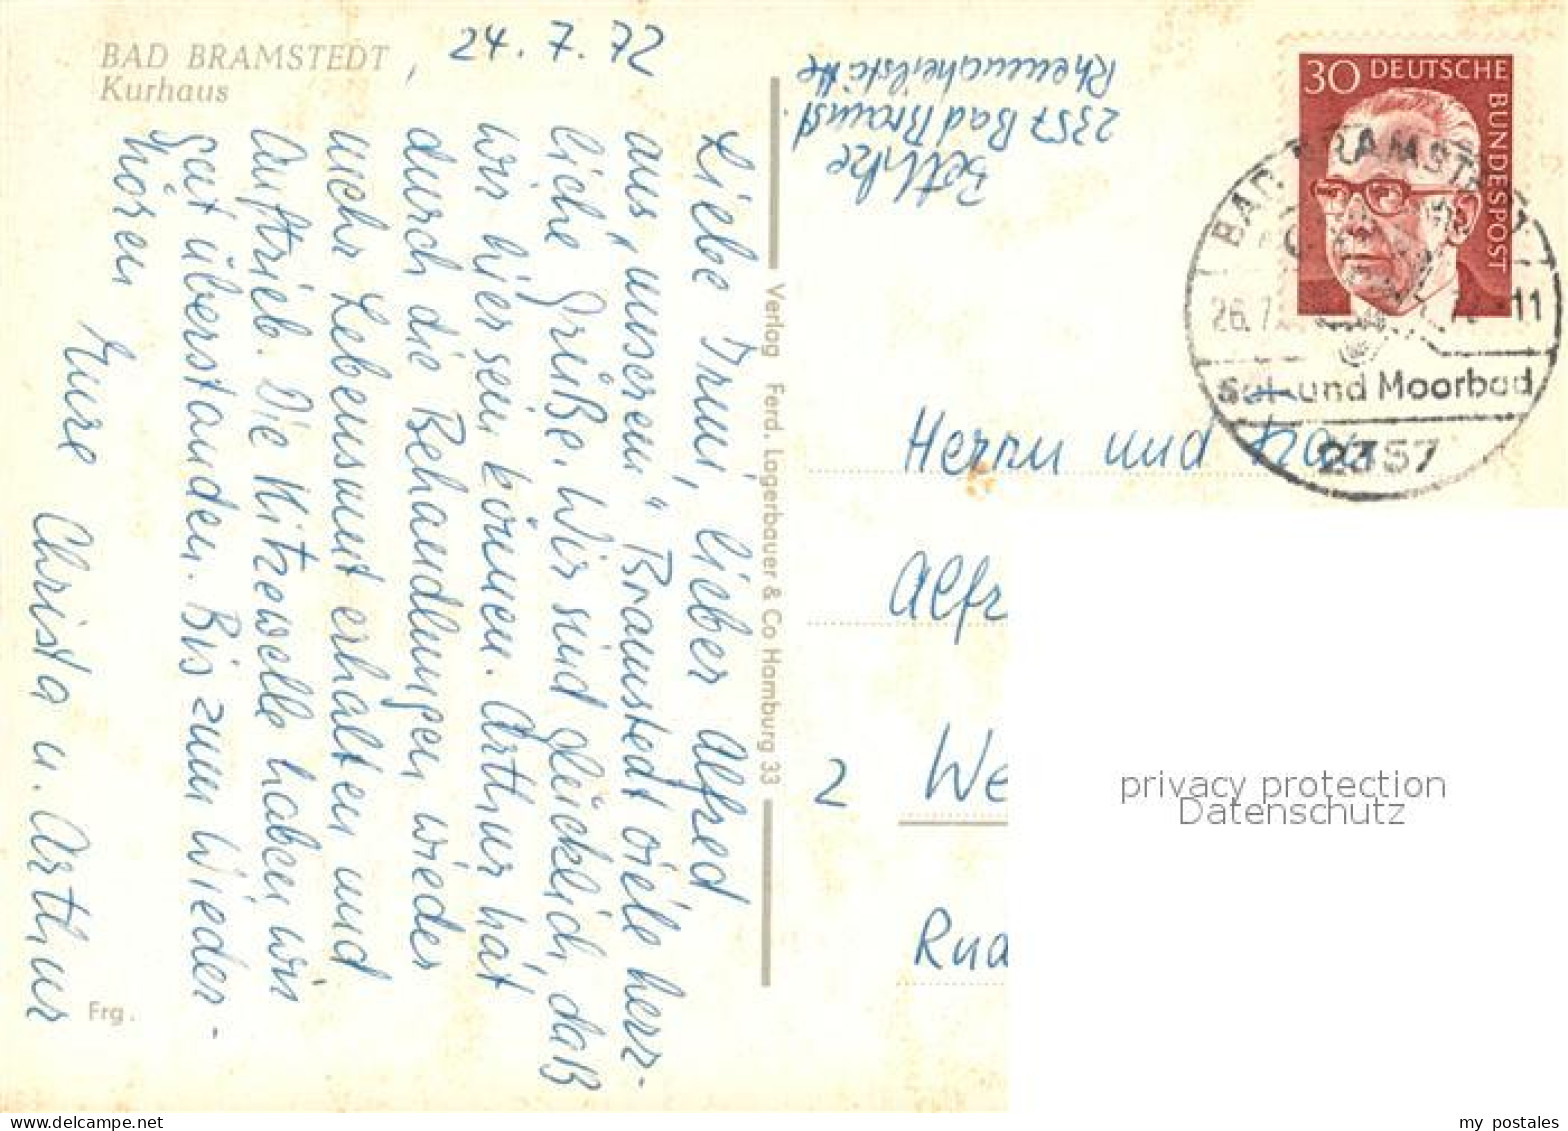 BAD BRAMSTEDT
Kurhaus
, 24.7.72
Liebe Irmi, lieber Alfred
aus „unserem“ Bramstedt viele herz-
liche Grüße. Wir sind glücklich, daß
wir hier sein können. Arthur hat
durch die Behandlungen wieder
mehr Lebensmut erhalten und
Auftrieb. Die Hitzewelle haben wir
gut überstanden. Bis zum Wieder-
hören
Eure Christa u. Arthur
Frg.
Verlag Ferd. Lagerbauer & Co Hamburg 33
2357 Bad Bramst.
Rheumaheilstätte
30 DEUTSCHE
BUNDESPOST
BAD BRAMSTEDT
26.7. -11
Sol- und Moorbad
2357
Herrn und Frau
Alfr
2 We
Rud
privacy protection
Datenschutz
my postales